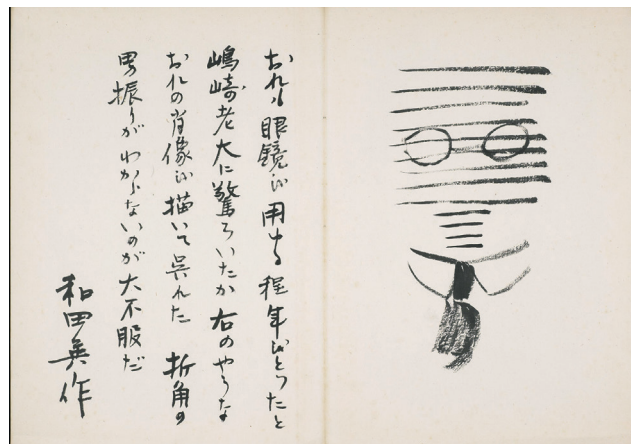 おれも眼鏡を用ゆる程年をとったと
嶋崎老大に驚ろいたか右のやうな
おれの肖像を描いて呉れた 折角の
男振りがわからないのが大不服だ
和田英作